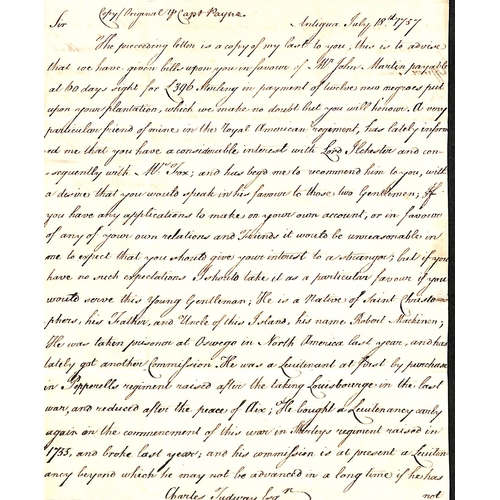 Copy/ Original ⅌ Capt Payne.
Sir Antigua July 18th 1757
The preceeding letter is a copy of my last to you; this is to advise
that we have given bills upon you in favour of Mr John Martin payable
at 60 days sight for £396 Sterling in payment of twelve new negroes put
upon your plantation, which we make no doubt but you will honour. A very
particular friend of mine in the Royal American regiment, has lately inform
ed me that you have a considerable interest with Lord Ilchester and con-
sequently with Mr Fox; and has beg'd me to recommend him to you, with
a desire that you would speak in his favour to those two Gentlemen; If
you have any applications to make on your own account, or in favour
of any of your own relations and Friends it would be unreasonable in
me to expect that you should give your interest to a stranger; but if you
have no such expectations I should take it as a particular favour if you
would serve this Young Gentleman; He is a Native of Saint Christo-
phers, his Father, and Uncle of this Island, his name Robert Mackinen;
He was taken prisoner at Oswego in North America last year, and has
lately got another Commission. He was a Lieutenant at first by purchase
in Pepperells regiment raised after the taking Louisbourge in the last
war, and reduced after the peace of Aix; He bought a Lieutenancy early
again on the commencement of this war in Shirleys regiment raised in
1755, and broke last year; and his commission is at present a Lieuten
ancy beyond which he may not be advanced in a long time if he has
Charles Tudway Esqr not